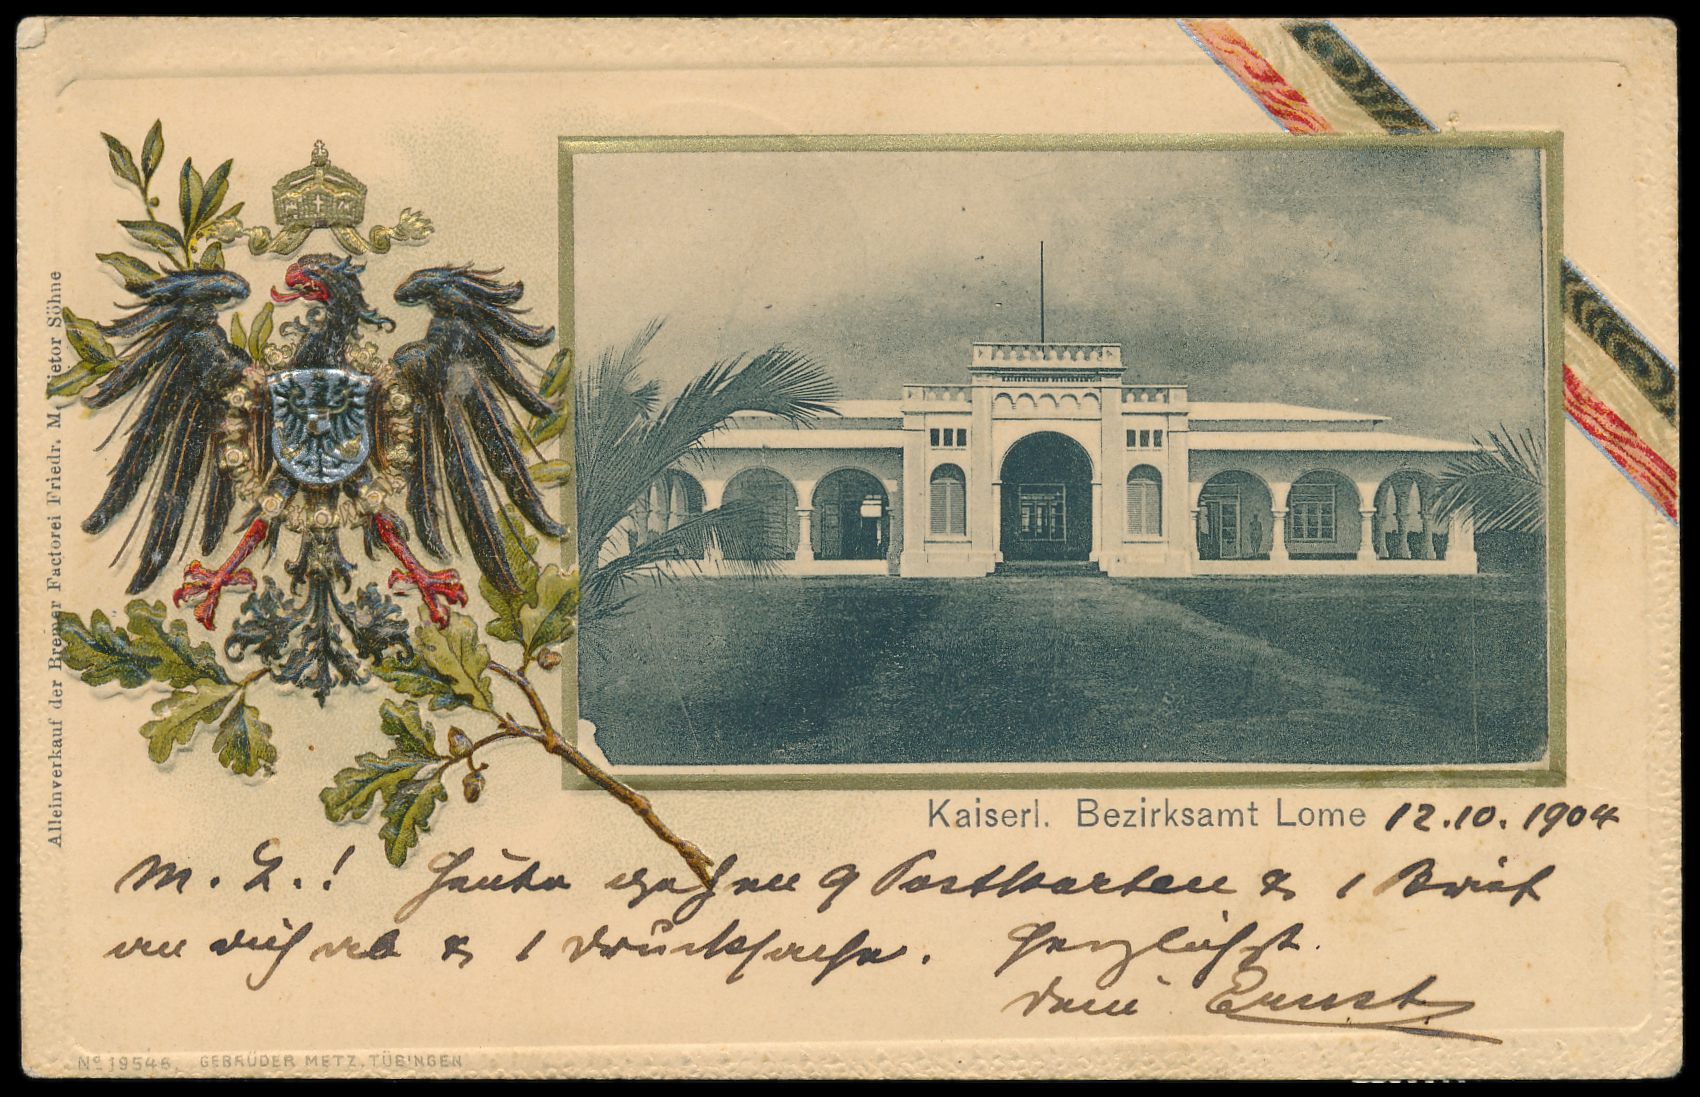 Alleinverkauf der Bremer Factorei Friedr. M. Vietor Söhne
KAISERLICHES BEZIRKSAMT
Kaiserl. Bezirksamt Lome 12.10.1904
M. L.! Heute gehen 9 Postkarten & 1 Brief
an dich ab & 1 Drucksache. Herzlichst
dein Ernst.
No 19546. GEBRÜDER METZ. TÜBINGEN